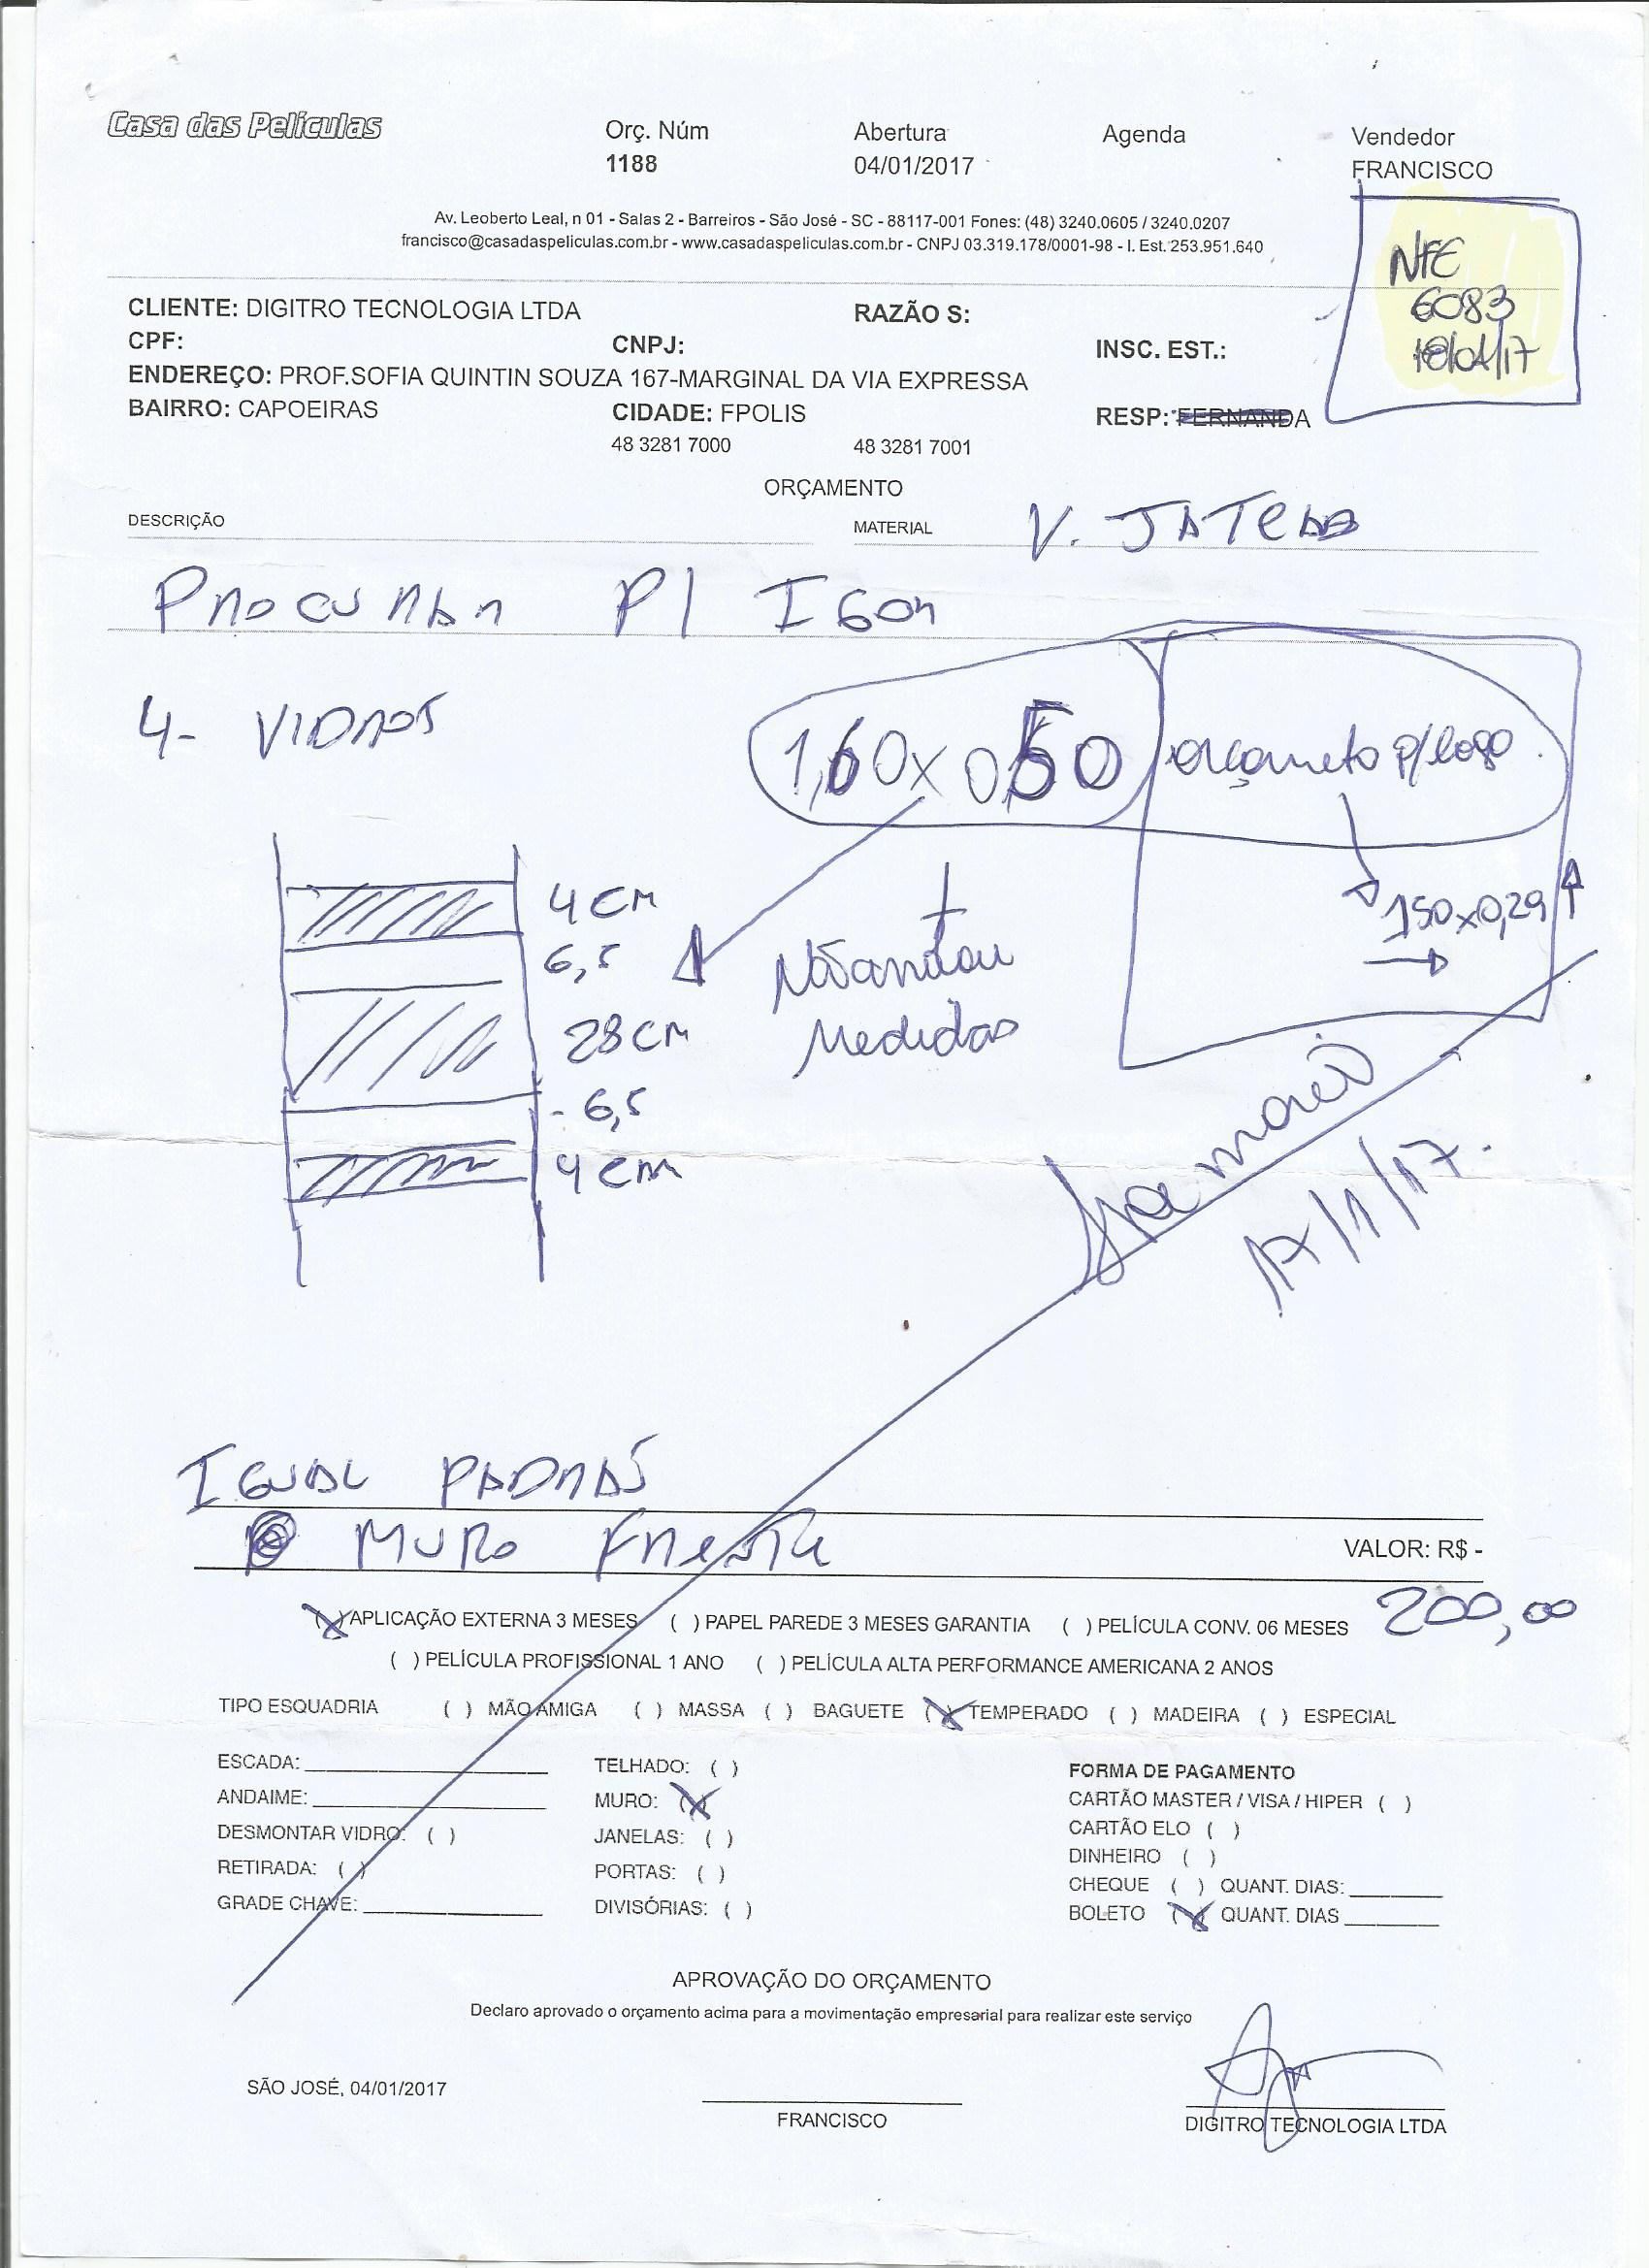 Casa das Películas
Orç. Núm
1188
Abertura
04/01/2017
Agenda
Vendedor
FRANCISCO
Av. Leoberto Leal, n 01 - Salas 2 - Barreiros - São José - SC - 88117-001 Fones: (48) 3240.0605 / 3240.0207
francisco@casadaspeliculas.com.br - www.casadaspeliculas.com.br - CNPJ 03.319.178/0001-98 - I. Est. 253.951.640
NFE
6083
18/01/17
CLIENTE: DIGITRO TECNOLOGIA LTDA RAZÃO S:
CPF: CNPJ: INSC. EST.:
ENDEREÇO: PROF.SOFIA QUINTIN SOUZA 167-MARGINAL DA VIA EXPRESSA
BAIRRO: CAPOEIRAS CIDADE: FPOLIS RESP: FERNANDA
48 3281 7000 48 3281 7001
ORÇAMENTO
DESCRIÇÃO MATERIAL V. JATEADO
PROCURAR P/ IGOR
4- VIDROS
1,60x0,50 orçameto p/logo
150x0,29
4 CM
6,5
28 CM
- 6,5
4 cm
Medidas
17/1/17.
IGUAL PADRAS
MURO FRENTE VALOR: R$ -
200,00
( ) APLICAÇÃO EXTERNA 3 MESES ( ) PAPEL PAREDE 3 MESES GARANTIA ( ) PELÍCULA CONV. 06 MESES
( ) PELÍCULA PROFISSIONAL 1 ANO ( ) PELÍCULA ALTA PERFORMANCE AMERICANA 2 ANOS
TIPO ESQUADRIA ( ) MÃO AMIGA ( ) MASSA ( ) BAGUETE (X) TEMPERADO ( ) MADEIRA ( ) ESPECIAL
ESCADA:
ANDAIME:
DESMONTAR VIDRO: ( )
RETIRADA: ( )
GRADE CHAVE:
TELHADO: ( )
MURO: (X)
JANELAS: ( )
PORTAS: ( )
DIVISÓRIAS: ( )
FORMA DE PAGAMENTO
CARTÃO MASTER / VISA / HIPER ( )
CARTÃO ELO ( )
DINHEIRO ( )
CHEQUE ( ) QUANT. DIAS:
BOLETO (X) QUANT. DIAS
APROVAÇÃO DO ORÇAMENTO
Declaro aprovado o orçamento acima para a movimentação empresarial para realizar este serviço
SÃO JOSÉ, 04/01/2017
FRANCISCO
DIGITRO TECNOLOGIA LTDA